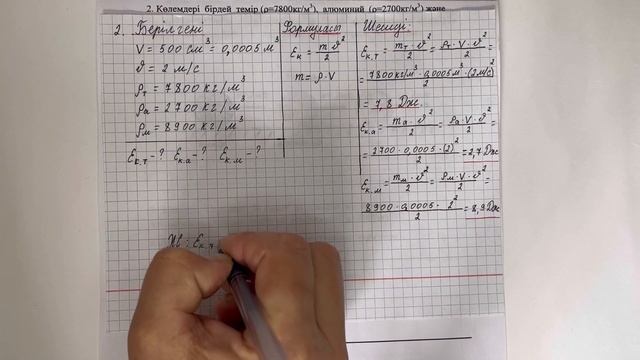 2. Көлемдері бірдей темір (ρ=7800кг/м³), алюминий (ρ=2700кг/м³) және
2. Берілгені
V = 500 см³ = 0,0005 м³
ϑ = 2 м/с
ρт = 7800 кг/м³
ρа = 2700 кг/м³
ρм = 8900 кг/м³
Eк.т - ? Eк.а - ? Eк.м - ?
Формуласы
Eк = m·ϑ²/2
m = ρ·V
Шешуі:
Eк.т = mт·ϑ²/2 = ρт·V·ϑ²/2 =
= 7800кг/м³·0,0005м³·(2м/с)²/2
= 7,8 Дж.
Eк.а = mа·ϑ²/2 = ρа·V·ϑ²/2 =
= 2700·0,0005·(2)²/2 = 2,7 Дж
Eк.м = mм·ϑ²/2 = ρм·V·ϑ²/2 =
8900·0,0005·2²/2 = 8,9 Дж
Ж: Eк.т